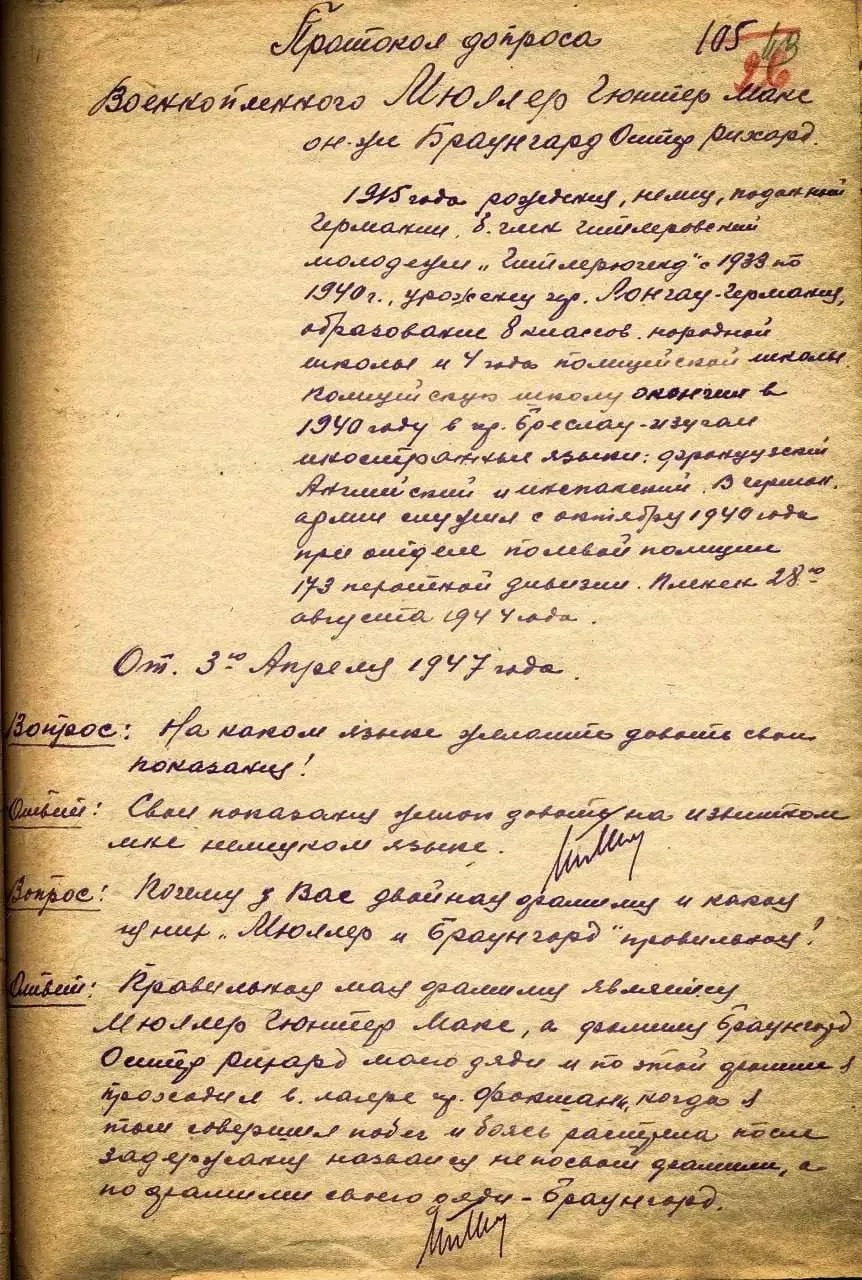 Протокол допроса 105 43
26
Военнопленного Мюллер Гюнтер Макс
он-же Браунгард Оттер Рихард.
1915 года рождения, немец, подданный
Германии, б. член гитлеровской
молодежи „Гитлерюгенд" с 1933 по
1940 г., уроженец гр. Лонгау-Германия,
образование 8 классов народной
школы и 4 года полицейской школы
полицейскую школу окончил в
1940 году в гр. Бреслау-изучал
иностранные языки: французский
Английский и испанский. В герман.
армии служил с октября 1940 года
при отделе полевой полиции
173 пехотной дивизии. Пленен 28го
августа 1944 года.
От. 3го Апреля 1947 года.
Вопрос: На каком языке желаете давать свои
показания!
Ответ: Свои показания желаю давать на известном
мне немецком языке.
Вопрос: Почему у Вас двойная фамилия и какая
из них „Мюллер и Браунгард" правильная!
Ответ: Правильная моя фамилия является
Мюллер Гюнтер Макс, а фамилия Браунгард
Рихард моего дяди и по этой фамилии я
проходил в лагере гр. когда я
там совершил побег и боясь растрела после
задержания назвался не по своей фамилии, а
по фамилии своего дяди - Браунгард.